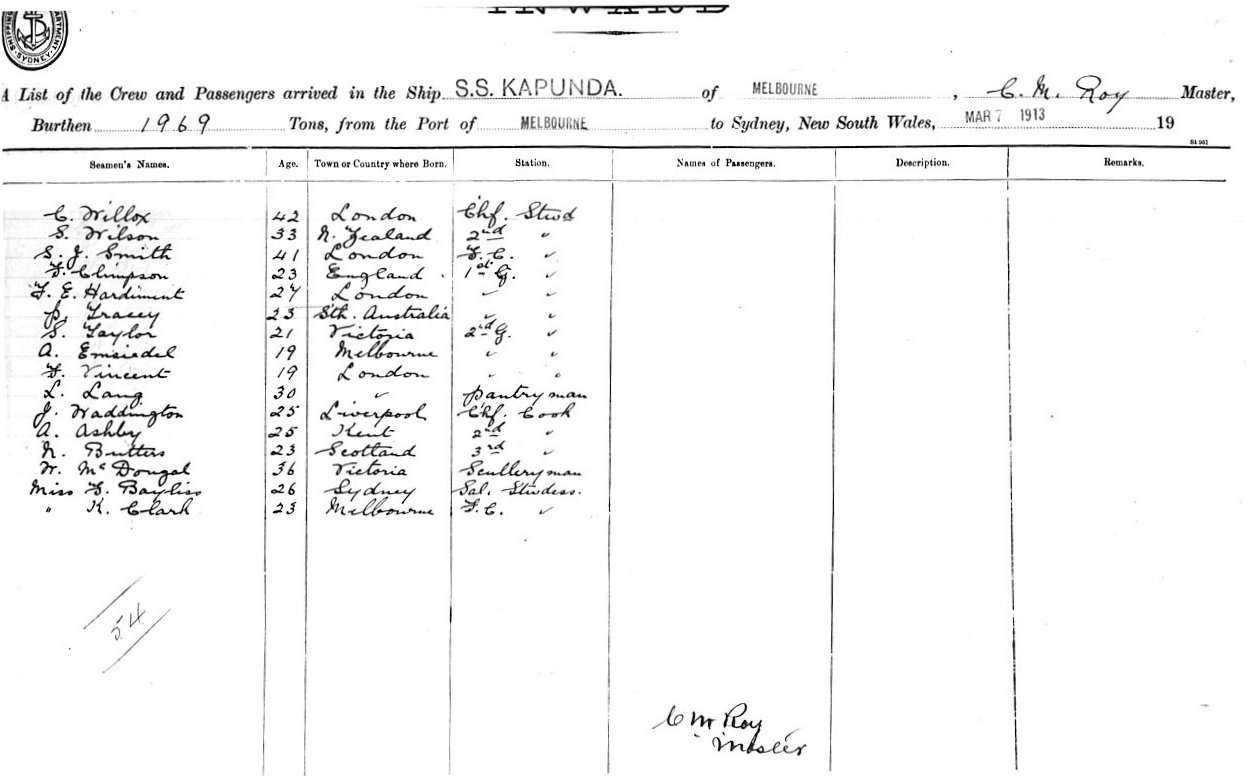 INWARD
SYDNEY
A List of the Crew and Passengers arrived in the Ship S.S. KAPUNDA. of MELBOURNE, C. M. Roy Master,
Burthen 1969 Tons, from the Port of MELBOURNE to Sydney, New South Wales, MAR 7 1913 19
Seamen's Names. Age. Town or Country where Born. Station. Names of Passengers. Description. Remarks.
C. Willox 42 London Chf. Stwd
S. Wilson 33 N. Zealand 2nd "
S. J. Smith 41 London F. C. "
F. Climpson 23 England 1st G. "
F. E. Hardiment 27 London " "
P. Tracey 23 Sth. Australia " "
S. Taylor 21 Victoria 2nd G. "
A. Emsiedel 19 Melbourne " "
F. Vincent 19 London " "
L. Lang 30 " Pantryman
J. Waddington 25 Liverpool Chf. Cook
A. Ashby 25 Kent 2nd "
N. Butters 23 Scotland 3rd "
W. McDougal 36 Victoria Sculleryman
Miss F. Bayliss 26 Sydney Sal. Stwdess.
" K. Clark 23 Melbourne F. C. "
54
C M Roy
Master